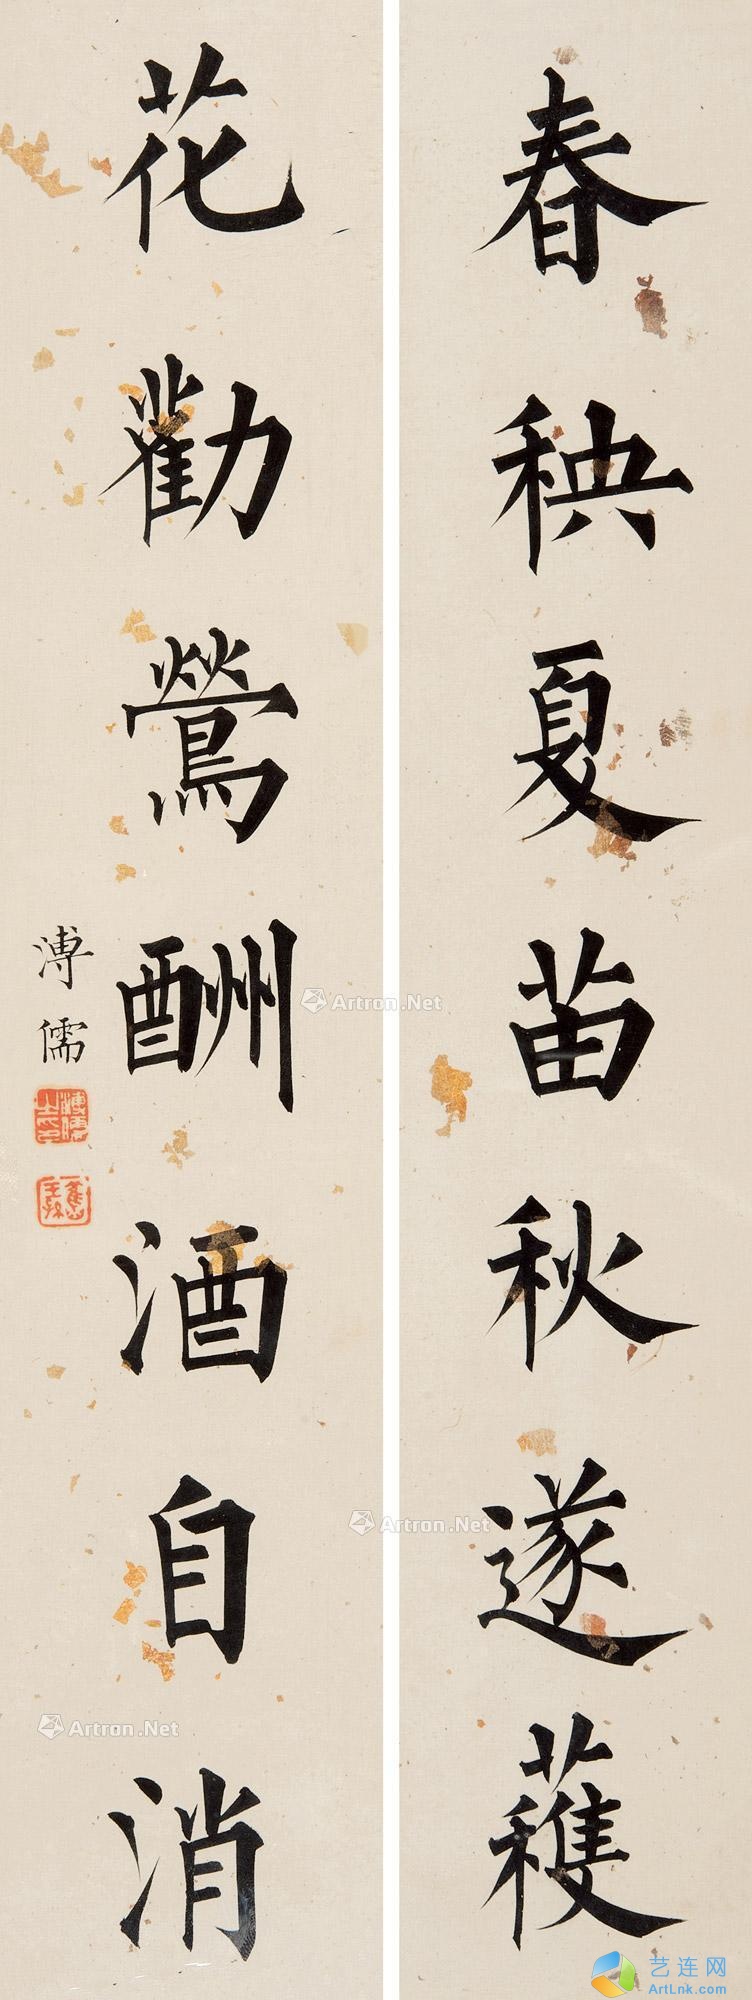 春秧夏苗秋遂穫
花勸鶯酬酒自消
溥儒
溥儒之印
舊王孫
Artron.Net
Artron.Net
Artron.Net
艺连网
ArtLnk.com